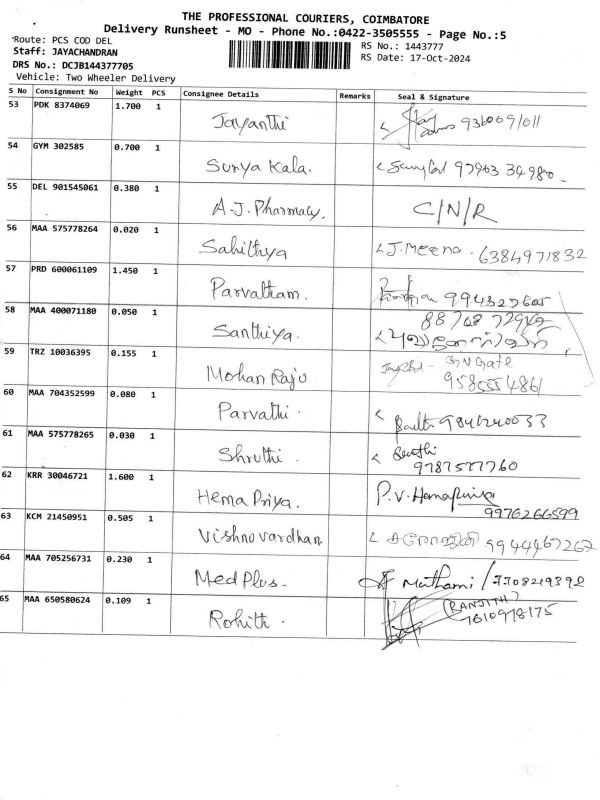 THE PROFESSIONAL COURIERS, COIMBATORE
Delivery Runsheet - MO - Phone No.:0422-3505555 - Page No.:5
Route: PCS COD DEL
RS No.: 1443777
Staff: JAYACHANDRAN
RS Date: 17-Oct-2024
DRS No.: DCJB144377705
Vehicle: Two Wheeler Delivery
S No Consignment No Weight PCS Consignee Details Remarks Seal & Signature
53 PDK 8374069 1.700 1
Jayanthi
54 GYM 302585 0.700 1
Surya Kala.
55 DEL 901545061 0.380 1
A-J. Pharmacy. C/N/R
56 MAA 575778264 0.020 1
Sahithya J. Meena. 6384971832
57 PRD 600061109 1.450 1
Parvatham.
58 MAA 400071180 0.050 1
Santhiya.
59 TRZ 10036395 0.155 1
Mohan Raju
60 MAA 704352599 0.080 1
Parvathi. 9841240033
61 MAA 575778265 0.030 1
Shruthi. 9787577760
62 KRR 30046721 1.600 1
Hema Priya. P.V. Hemapriya
9976266599
63 KCM 21450951 0.505 1
Vishnu vardhan 9944467267
64 MAA 705256731 0.230 1
MedPlus- 7708219392
65 MAA 650580624 0.109 1
Rohith. (RANJITH)